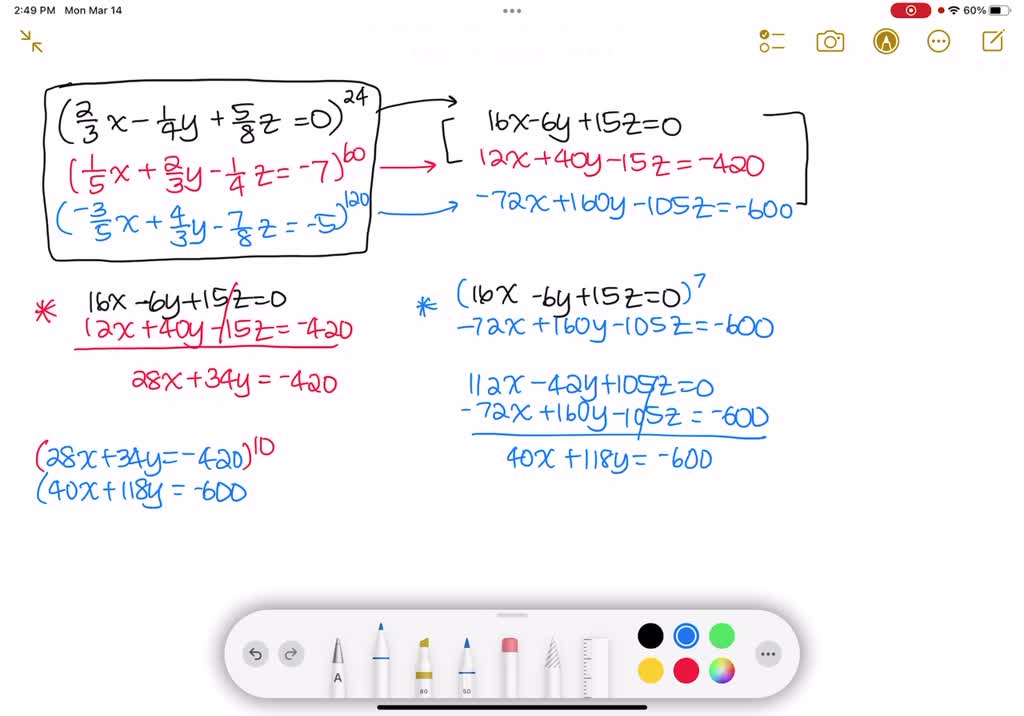 2:49 PM Mon Mar 14
60%
(2/3x - 1/4y + 5/8z = 0)^24
16x - 6y + 15z = 0
(1/5x + 2/3y - 1/4z = -7)^60
12x + 40y - 15z = -420
(-3/5x + 4/3y - 7/8z = -5)^120
-72x + 160y - 105z = -600
* 16x - 6y + 15z = 0
12x + 40y - 15z = -420
28x + 34y = -420
* (16x - 6y + 15z = 0)^7
-72x + 160y - 105z = -600
112x - 42y + 105z = 0
-72x + 160y - 105z = -600
40x + 118y = -600
(28x + 34y = -420)^10
(40x + 118y = -600
A
80
50